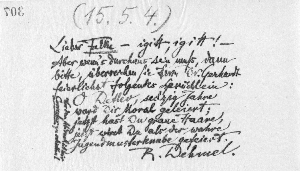 308
(15.5.4.)
Lieber Falke — igitt, igitt! —
Aber wenn's durchaus sein muß, dann
bitte, überreichen Sie Herrn Dr. Gerhardt
feierlichst folgendes Sprüchlein:
O Detlev, sechzig Jahre
ward die Moral gefeiert;
jetzt hast Du graue Haare,
jetzt wirst Du als der wahre
Jugendmusterknabe gefeiert.
R. Dehmel.